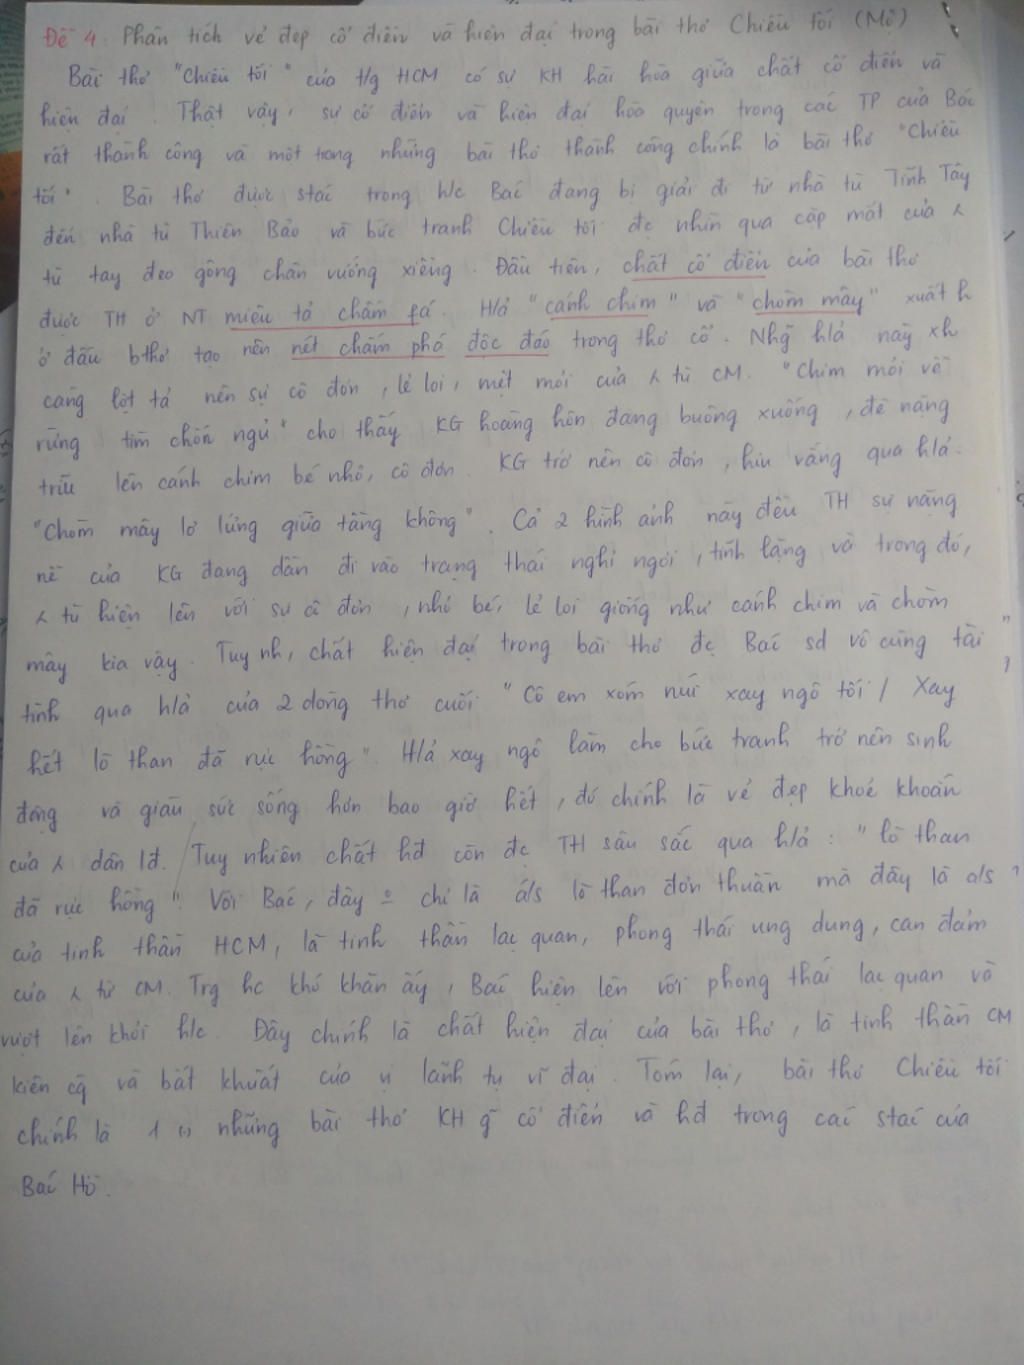 Đề 4. Phân tích vẻ đẹp cổ điển và hiện đại trong bài thơ Chiều tối (Mộ)
Bài thơ "Chiều tối" của t/g HCM có sự KH hài hòa giữa chất cổ điển và
hiện đại. Thật vậy, sự cổ điển và hiện đại hòa quyện trong các TP của Bác
rất thành công và một trong những bài thơ thành công chính là bài thơ "Chiều
tối". Bài thơ được stác trong h/c Bác đang bị giải đi từ nhà tù Tĩnh Tây
đến nhà tù Thiên Bảo và bức tranh Chiều tối đc nhìn qua cặp mắt của
tù tay đeo gông chân vướng xiềng. Đầu tiên, chất cổ điển của bài thơ
được TH ở NT miêu tả chấm fá. H/ả "cánh chim" và "chòm mây" xuất h
ở đầu bthơ tạo nên nét chấm phá độc đáo trong thơ cổ. Nhg~ h/ả này xh
càng lột tả nên sự cô đơn, lẻ loi, mệt mỏi của tù CM. "Chim mỏi về
rừng tìm chốn ngủ" cho thấy KG hoàng hôn đang buông xuống, đè nặng
trĩu lên cánh chim bé nhỏ, cô đơn. KG trở nên cô đơn, hiu vắng qua h/ả.
"Chòm mây lơ lửng giữa tầng không". Cả 2 hình ảnh này đều TH sự nặng
nề của KG đang dần đi vào trạng thái nghỉ ngơi, tĩnh lặng và trong đó,
tù hiện lên với sự cô đơn, nhỏ bé, lẻ loi giống như cánh chim và chòm
mây kia vậy. Tuy nh, chất hiện đại trong bài thơ đc Bác sd vô cùng tài
tình qua h/ả của 2 dòng thơ cuối "Cô em xóm núi xay ngô tối / Xay
hết lò than đã rực hồng". H/ả xay ngô làm cho bức tranh trở nên sinh
động và giàu sức sống hơn bao giờ hết, đó chính là vẻ đẹp khoẻ khoắn
của dân lđ. / Tuy nhiên chất hđ còn đc TH sâu sắc qua h/ả: "lò than
đã rực hồng". Với Bác, đây chỉ là á/s lò than đơn thuần mà đây là a/s
của tinh thần HCM, là tinh thần lạc quan, phong thái ung dung, can đảm
của tù CM. Trg hc khó khăn ấy, Bác hiện lên với phong thái lạc quan và
vượt lên khỏi h/c. Đây chính là chất hiện đại của bài thơ, là tinh thần CM
kiên cg và bất khuất của vị lãnh tụ vĩ đại. Tóm lại, bài thơ Chiều tối
chính là 1 (.) những bài thơ KH g~ cổ điển và hđ trong các stác của
Bác Hồ.